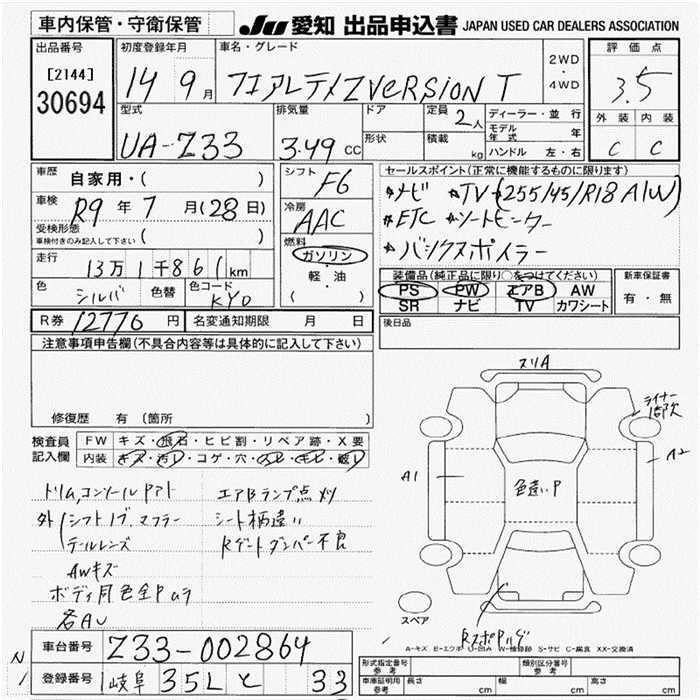 車内保管・守衛保管
JU 愛知 出品申込書 JAPAN USED CAR DEALERS ASSOCIATION
出品番号
[2144]
30694
初度登録年月
14 9月
車名・グレード
フェアレディZ VERSION T
2WD
・
4WD
評価点
3.5
外装 内装
C C
型式
UA-Z33
排気量
3.49 CC
ドア
形状
定員 2人
積載 kg
ディーラー・並行
モデル年式 年
ハンドル 左・右
車歴 自家用・( )
車検 R9年7月(28日)
受検形態
車検付きのみ記入して下さい ( )
走行 13万1千861km
色 シルバ 色替 色コード KY0
シフト F6
冷房 AAC
燃料
ガソリン
・
軽・油
( )
セールスポイント(正常に機能するものに限ります)
☆ナビ ☆TV (255/45/R18 A/W)
☆ETC ☆シートヒーター
☆バックスポイラー
装備品(純正品に限り○をつけてください)
PS PW エアB AW
SR ナビ TV カワシート
新車保証書
有・無
R券 12776円 名変通知期限 月 日
後日品
注意事項申告欄(不具合内容等は具体的に記入して下さい)
修復歴 有 (箇所 )
検査員
記入欄
FW キズ・飛石・ヒビ割・リペア跡・X要
内装 キズ・汚レ・コゲ・穴・スレ・キレ・破レ
トリム,コンソールPアト
外 シフトノブ,マフラー
テールレンズ
AWキズ
ボディ同色全Pムラ
各AU
エアBランプ点灯
シート柄違い
Rゲートダンパー不良
スリA
ライナー1部欠
A1
A2
色違いP
スペア
A-キズ E-エクボ U-凹み W-補修跡 S-サビ C-腐食 XX-交換済
車台番号 Z33-002864
登録番号 岐阜 35L と 33
N
/
形式指定番号
参考
類別区分番号
参考
車庫証明用
参考
長さ cm
幅 cm
高さ cm